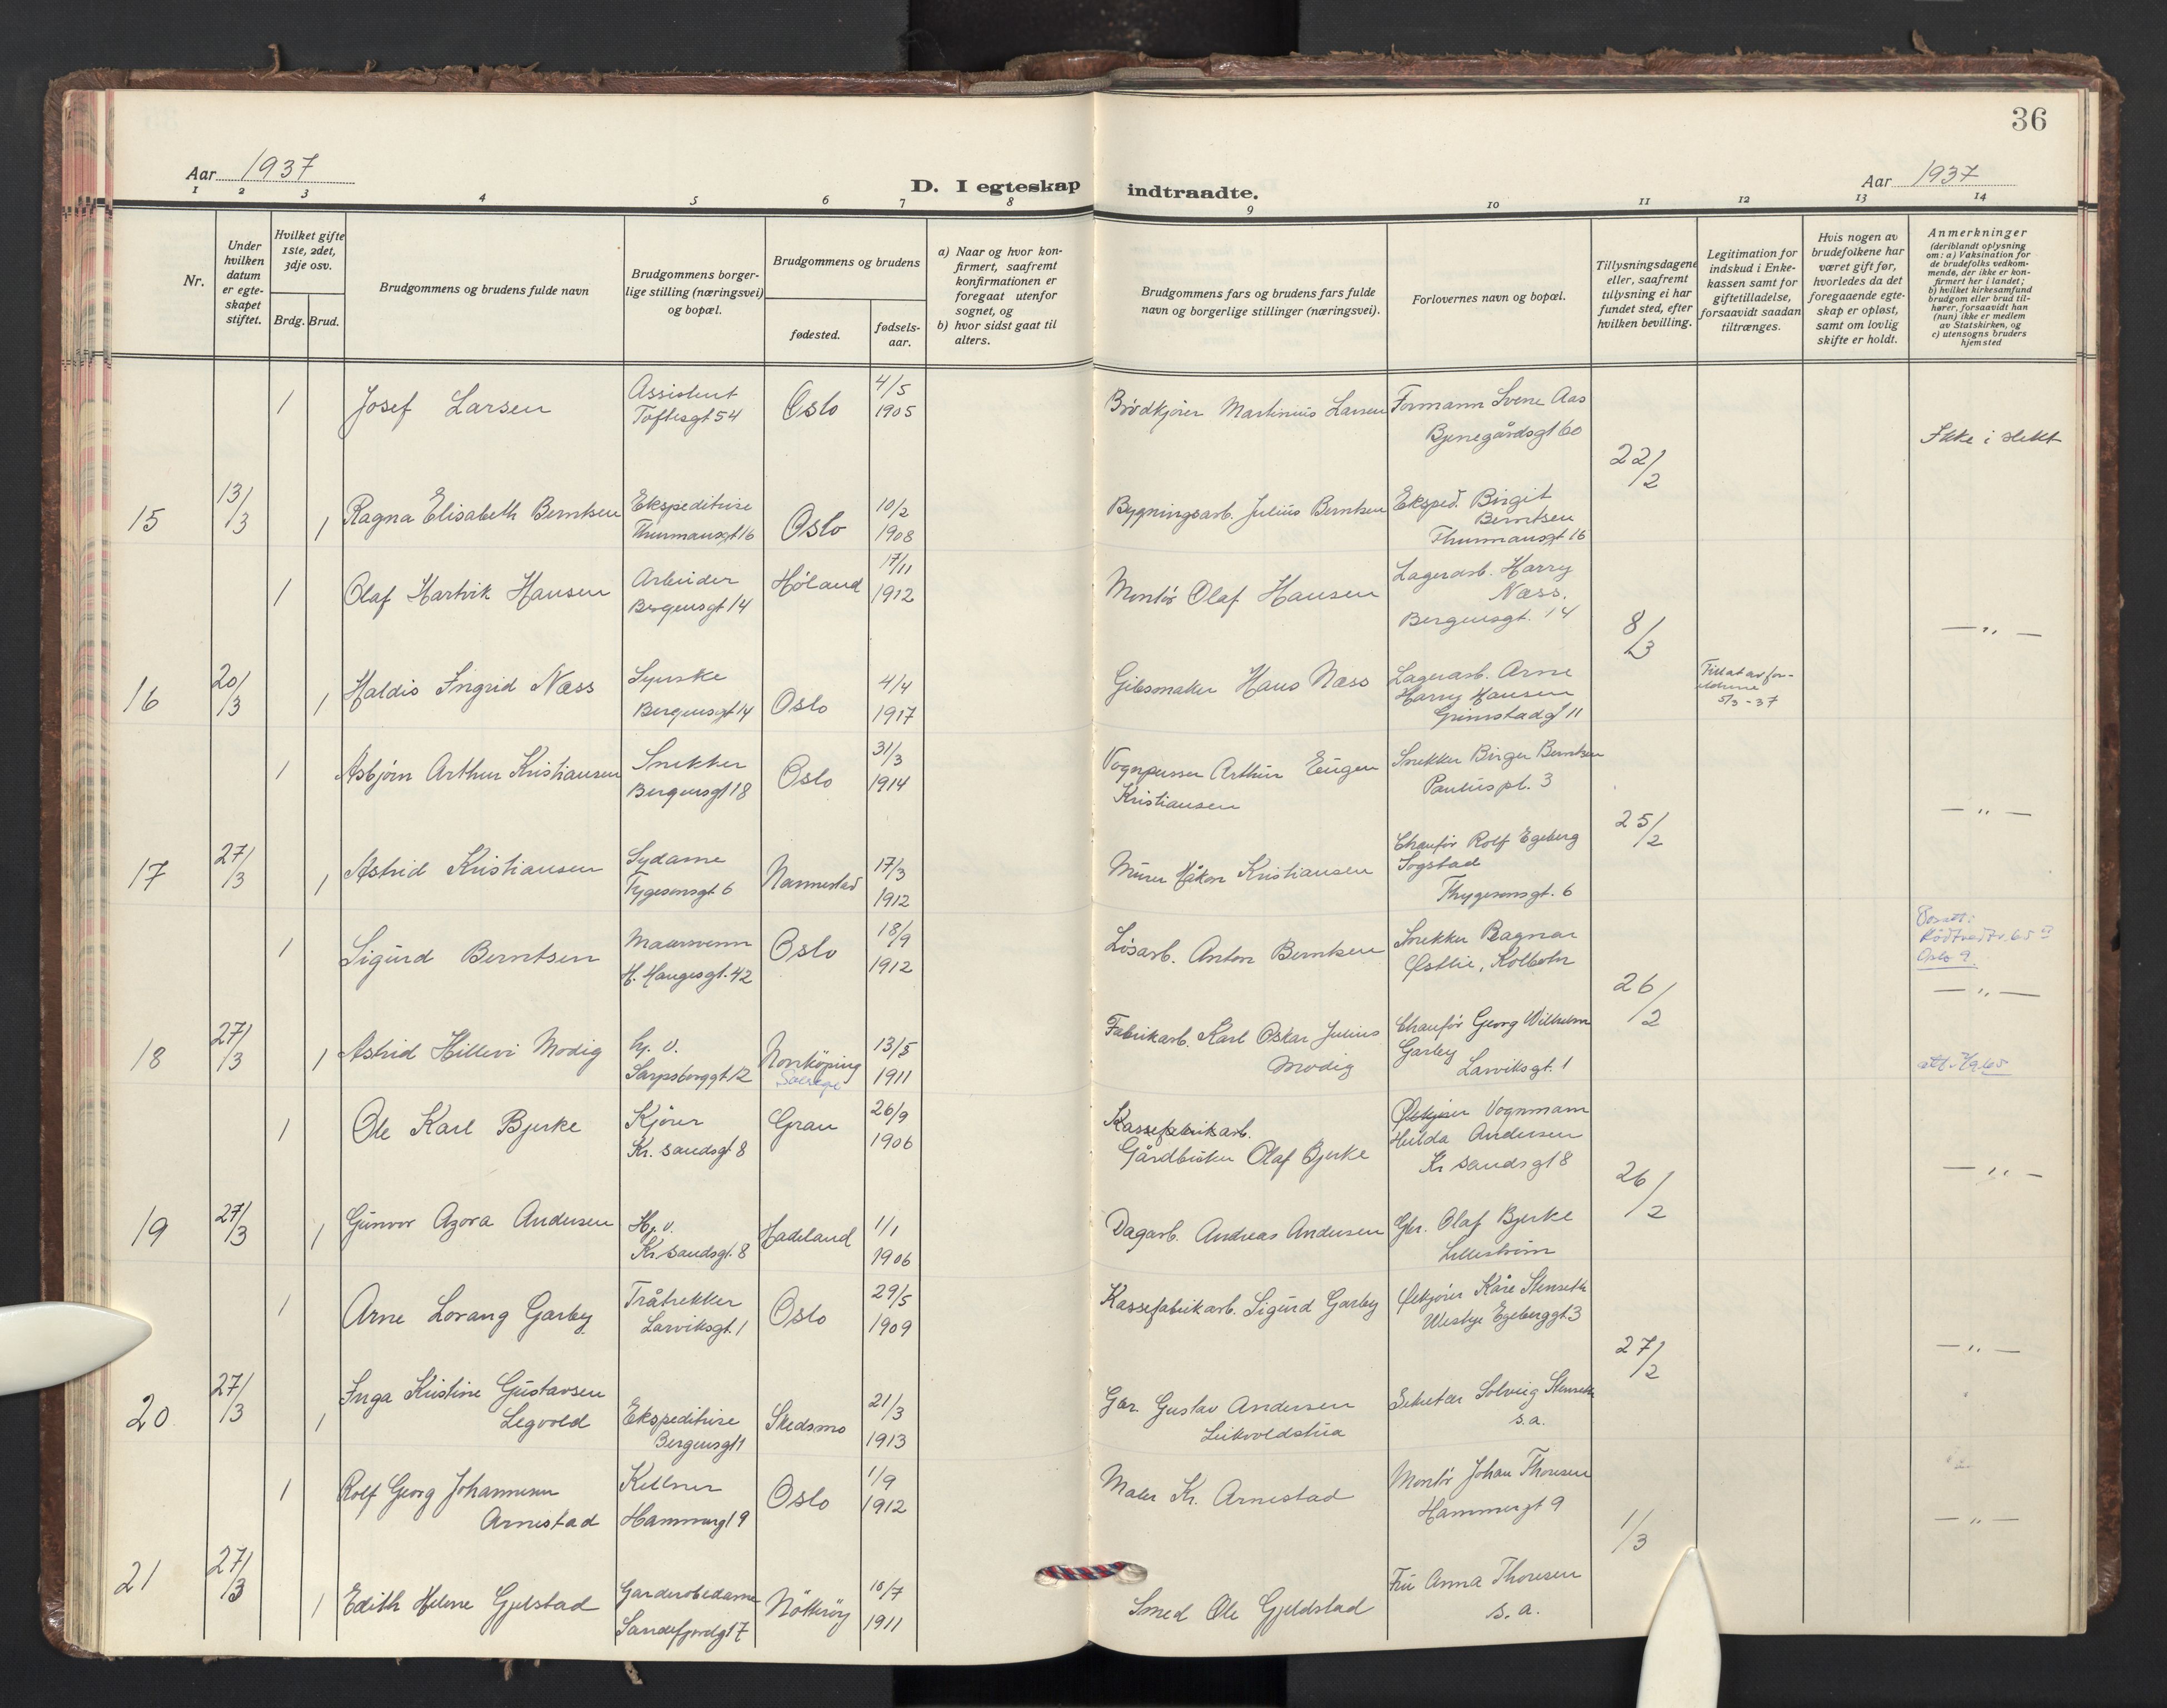 36
Aar 1937
D. I egteskap indtraadte.
Aar 1937
1 2 3 4 5 6 7 8 9 10 11 12 13 14
Nr.
Under hvilken datum er egte-skapet stiftet.
Hvilket gifte 1ste, 2det, 3dje osv.
Brdg. Brud.
Brudgommens og brudens fulde navn
Brudgommens borger-lige stilling (næringsvei) og bopæl.
Brudgommens og brudens
fødested.
fødsels-aar.
a) Naar og hvor kon-firmert, saafremt konfirmationen er foregaat utenfor sognet, og
b) hvor sidst gaat til alters.
Brudgommens fars og brudens fars fulde navn og borgerlige stillinger (næringsvei).
Forlovernes navn og bopæl.
Tillysningsdagene eller, saafremt tillysning ei har fundet sted, efter hvilken bevilling.
Legitimation for indskud i Enke-kassen samt for giftetilladelse, forsaavidt saadan tiltrænges.
Hvis nogen av brudefolkene har været gift før, hvorledes da det foregaaende egte-skap er opløst, samt om lovlig skifte er holdt.
Anmerkninger
(deriblandt oplysning om: a) Vaksination for de brudefolks vedkom-mende, der ikke er kon-firmert her i landet; b) hvilket kirkesamfund brudgom eller brud til-hører, forsaavidt han (hun) ikke er medlem av Statskirken, og c) utensogns bruders hjemsted
1 Josef Larsen
Assistent
Toftesgt 54
Oslo
4/5
1905
Brödkjører Martinius Larsen
Formann Svene Aas
Bjerregårdsgt 60
22/2
Ikke i slekt
15 13/3 1 Ragna Elisabeth Berntsen
Ekspeditrise
Thurmansgt 16
Oslo
10/2
1908
Bygningsarb. Julius Berntsen
Eksped. Birgit
Berntsen
Thurmansgt 16
1 Olaf Hartvik Hansen
Arbeider
Bergensgt 14
Høland
17/11
1912
Montör Olaf Hansen
Lagerarb. Harry
Næss.
Bergensgt. 14
8/3
— „ —
16 20/3 1 Haldis Ingrid Næss
Syerske
Bergensgt 14
Oslo
4/4
1917
Gibsmaker Hans Næss
Lagerarb. Arne
Harry Hansen
Grimstadgt 11
Tillat av for-
eldrene
5/3-37
1 Asbjörn Arthur Kristiansen
Snekker
Bergensgt 18
Oslo
31/3
1914
Vognpusser Arthur Eugen
Kristiansen
Snekker Birger Berntsen
Paulus pl. 3
25/2
— „ —
17 27/3 1 Astrid Kristiansen
Sydame
Tygesonsgt 6
Nannestad
17/3
1912
Murer Håkon Kristiansen
Chauför Rolf Egeberg
Sogstad
Thygesonsgt. 6
1 Sigurd Berntsen
H. Haugesgt. 42
Oslo
18/9
1912
Løsarb. Anton Berntsen
Snekker Ragnar
Østlie, Kolbotn
26/2
Oslo 9.
— „ —
18 27/3 1 Astrid Hillevi Modig
hj. v.
Sarpsborggt 12
Norrköping
Sverige
13/5
1911
Fabrikarb. Karl Oskar Julius
Modig
Chauför Georg Wilhelm
Garley
Larviksgt. 1
1 Ole Karl Bjerke
Kjörer
Kr. sandsgt 8
Gran
26/9
1906
Kassefabrikarb.
Gårdbruker Olaf Bjerke
Vognmann
Hulda Andersen
Kr sandsgt 8
26/2
— „ —
19 27/3 1 Gunvor Azora Andersen
Hj. v.
Kr. sandsgt. 8
Hadeland
1/1
1906
Dagarb. Andreas Andersen
Gbr. Olaf Bjerke
Lilleström
1 Arne Lorang Garley
Tråtrekker
Larviksgt. 1
Oslo
29/5
1909
Kassefabrikarb. Sigurd Garley
Ølkjörer Kåre Stenseth
Westye Egeberggt 3
27/2
— „ —
20 27/3 1 Inga Kristine Gustavsen
Legvold
Ekspeditrise
Bergensgt 1
Skedsmo
21/3
1913
Gbr. Gustav Andersen
Leikvoldstua
Sekretær Solveig Stenseth
s.a.
1 Rolf Georg Johannesen
Arnestad
Kellner
Hammergt 9
Oslo
1/9
1912
Maler Kr. Arnestad
Montör Johan Thoresen
Hammergt 9
1/3
— „ —
21 27/3 1 Edith Helene Gjelstad
Garderobedame
Sandefjordgt 7
Nötteröy
10/7
1911
Smed Ole Gjeldstad
Fru Anna Thoresen
s.a.